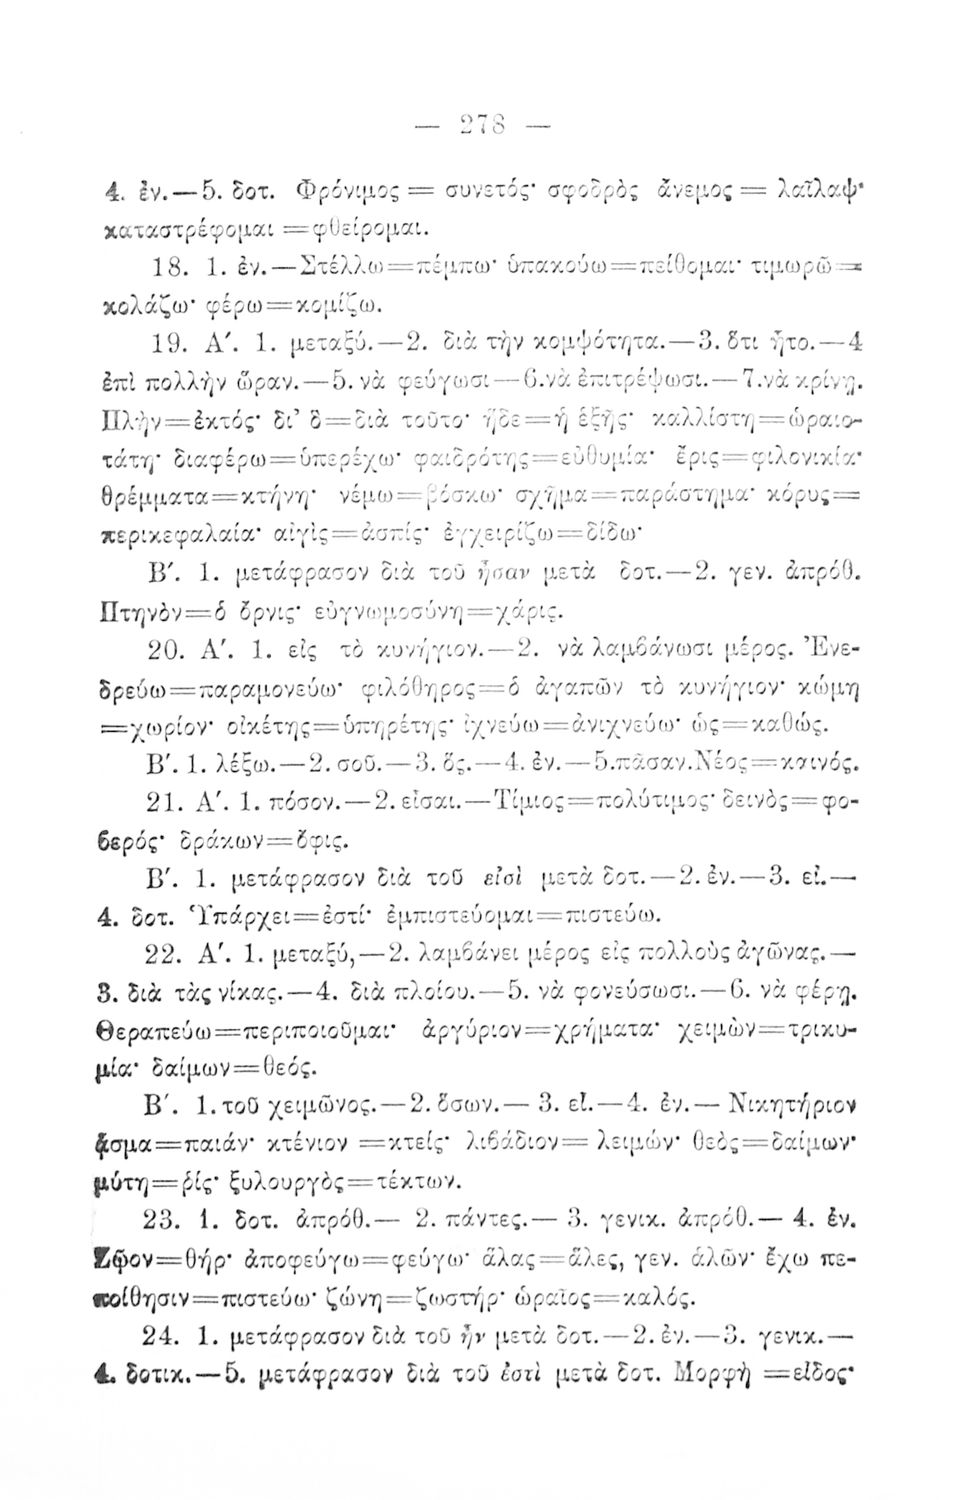 — 278 —
4. ἐν.—5. δοτ. Φρόνιμος = συνετός· σφοδρὸς ἄνεμος = λαῖλαψ·
καταστρέφομαι =φθείρομαι.
18. 1. ἐν.—Στέλλω=πέμπω· ὑπακούω=πείθομαι· τιμωρῶ=
κολάζω· φέρω=κομίζω.
19. Α΄. 1. μεταξύ.—2. διὰ τὴν κομψότητα.—3. ὅτι ἦτο.—4
ἐπὶ πολλὴν ὥραν.—5. νὰ φεύγωσι—6.νὰ ἐπιτρέψωσι.—7.νὰ κρίνῃ.
Πλὴν=ἐκτός· δι᾽ ὃ=διὰ τοῦτο· ἥδε=ἡ ἑξῆς· καλλίστη=ὡραιο-
τάτη· διαφέρω=ὑπερέχω· φαιδρότης=εὐθυμία· ἔρις=φιλονικία·
θρέμματα=κτήνη· νέμω=βόσκω· σχῆμα=παράστημα· κόρυς=
περικεφαλαία· αἰγὶς=ἀσπίς· ἐγχειρίζω=δίδω·
Β΄. 1. μετάφρασον διὰ τοῦ ἦσαν μετὰ δοτ.—2. γεν. ἀπρόθ.
Πτηνὸν=ὁ ὄρνις· εὐγνωμοσύνη=χάρις.
20. Α΄. 1. εἰς τὸ κυνήγιον.—2. νὰ λαμβάνωσι μέρος. Ἐνε-
δρεύω=παραμονεύω· φιλόθηρος=ὁ ἀγαπῶν τὸ κυνήγιον· κώμη
=χωρίον· οἰκέτης=ὑπηρέτης· ἰχνεύω=ἀνιχνεύω· ὡς=καθώς.
Β΄. 1. λέξω.—2. σοῦ.—3. ὅς.—4. ἐν.—5.πᾶσαν.Νέος=καινός.
21. Α΄. 1. πόσον.—2. εἶσαι.—Τίμιος=πολύτιμος· δεινὸς=φο-
βερός· δράκων=ὄφις.
Β΄. 1. μετάφρασον διὰ τοῦ εἰσὶ μετὰ δοτ.—2. ἐν.—3. εἰ.—
4. δοτ. Ὑπάρχει=ἐστί· ἐμπιστεύομαι=πιστεύω.
22. Α΄. 1. μεταξύ,—2. λαμβάνει μέρος εἰς πολλοὺς ἀγῶνας.—
3. διὰ τὰς νίκας.—4. διὰ πλοίου.—5. νὰ φονεύσωσι.—6. νὰ φέρῃ.
Θεραπεύω=περιποιοῦμαι· ἀργύριον=χρήματα· χειμὼν=τρικυ-
μία· δαίμων=θεός.
Β΄. 1. τοῦ χειμῶνος.—2. ὅσων.— 3. εἰ.—4. ἐν.— Νικητήριον
ᾆσμα=παιάν· κτένιον =κτείς· λιβάδιον= λειμών· θεὸς=δαίμων·
μύτη=ῥίς· ξυλουργὸς=τέκτων.
23. 1. δοτ. ἀπρόθ.— 2. πάντες.— 3. γενικ. ἀπρόθ.— 4. ἐν.
Ζῷον=θήρ· ἀποφεύγω=φεύγω· ἅλας=ἅλες, γεν. ἁλῶν· ἔχω πε-
ποίθησιν=πιστεύω· ζώνη=ζωστήρ· ὡραῖος=καλός.
24. 1. μετάφρασον διὰ τοῦ ἦν μετὰ δοτ.—2. ἐν.—3. γενικ.—
4. δοτικ.—5. μετάφρασον διὰ τοῦ ἐστὶ μετὰ δοτ. Μορφὴ =εἶδος·